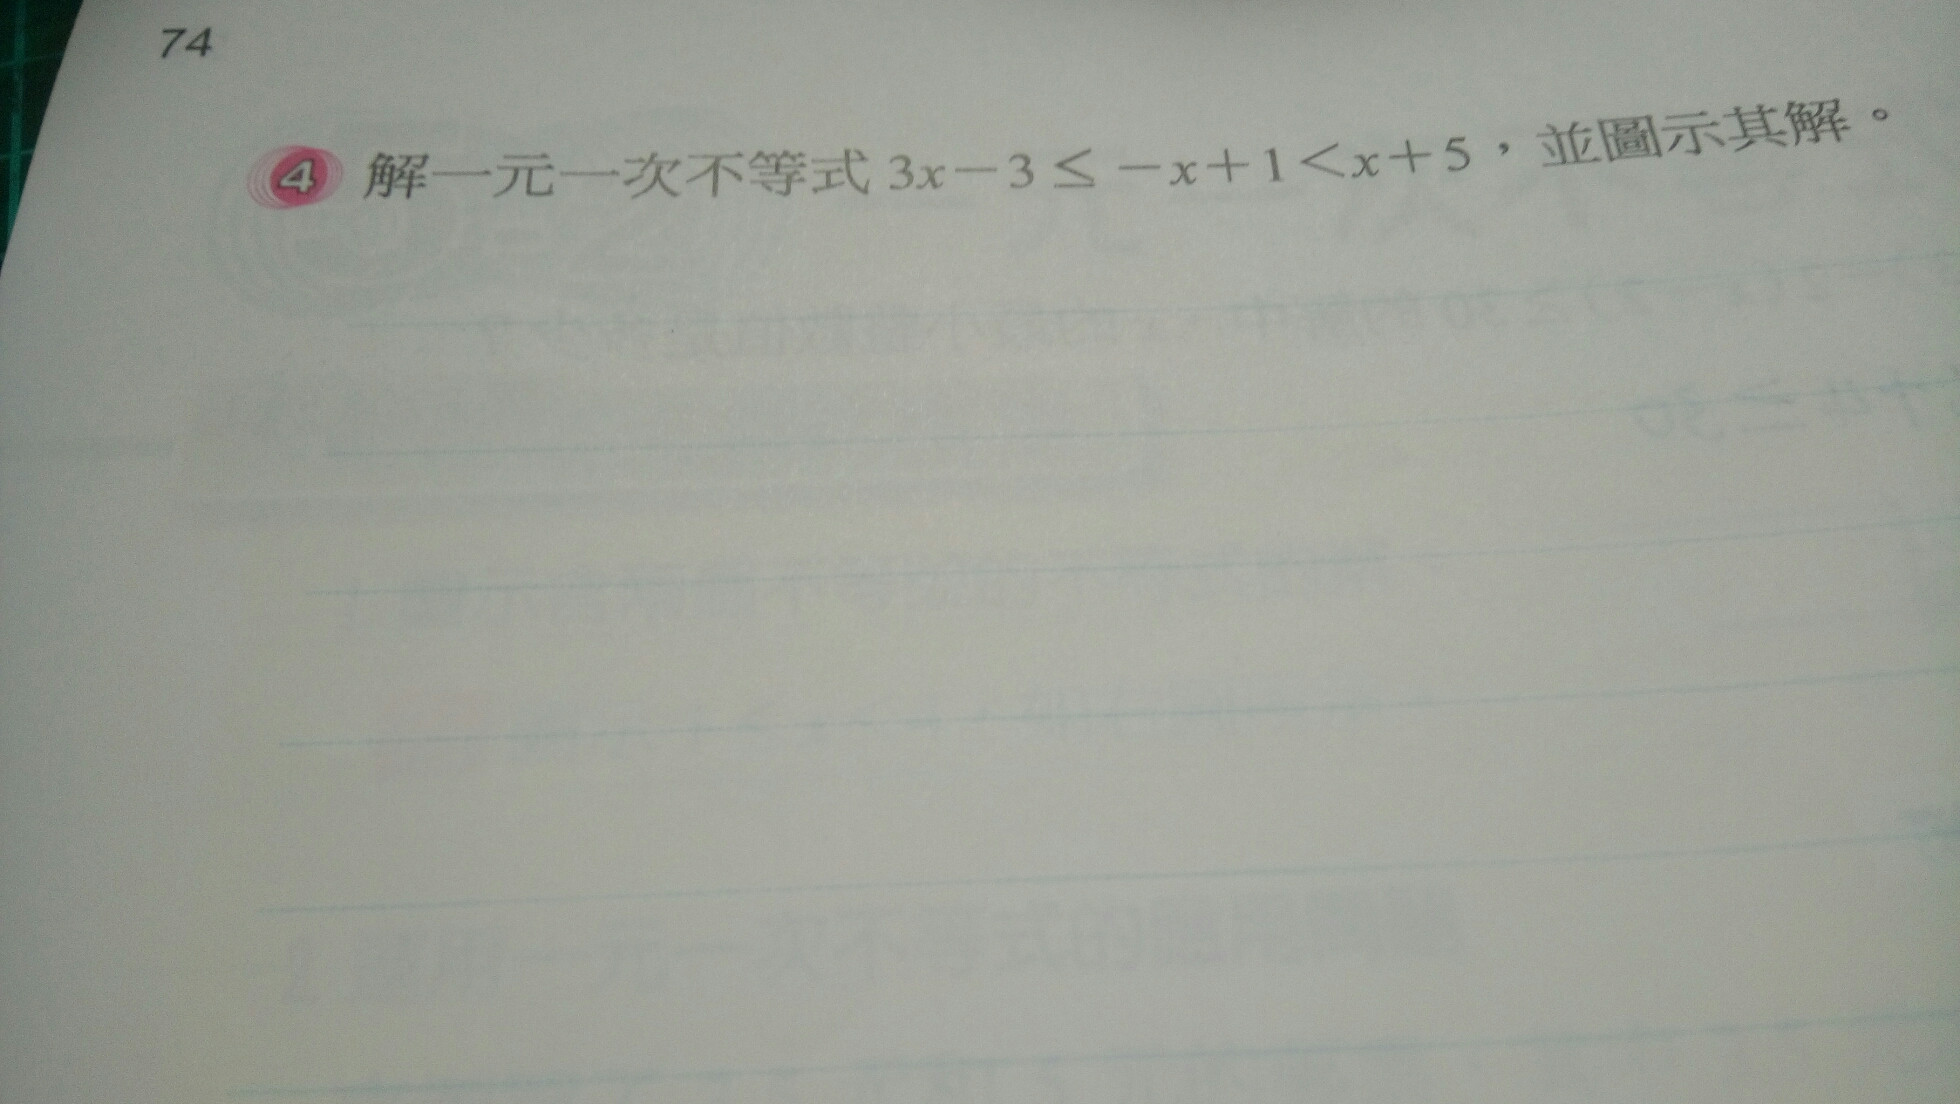 74
4 解一元一次不等式 3x－3 ≤ －x＋1＜x＋5，並圖示其解。